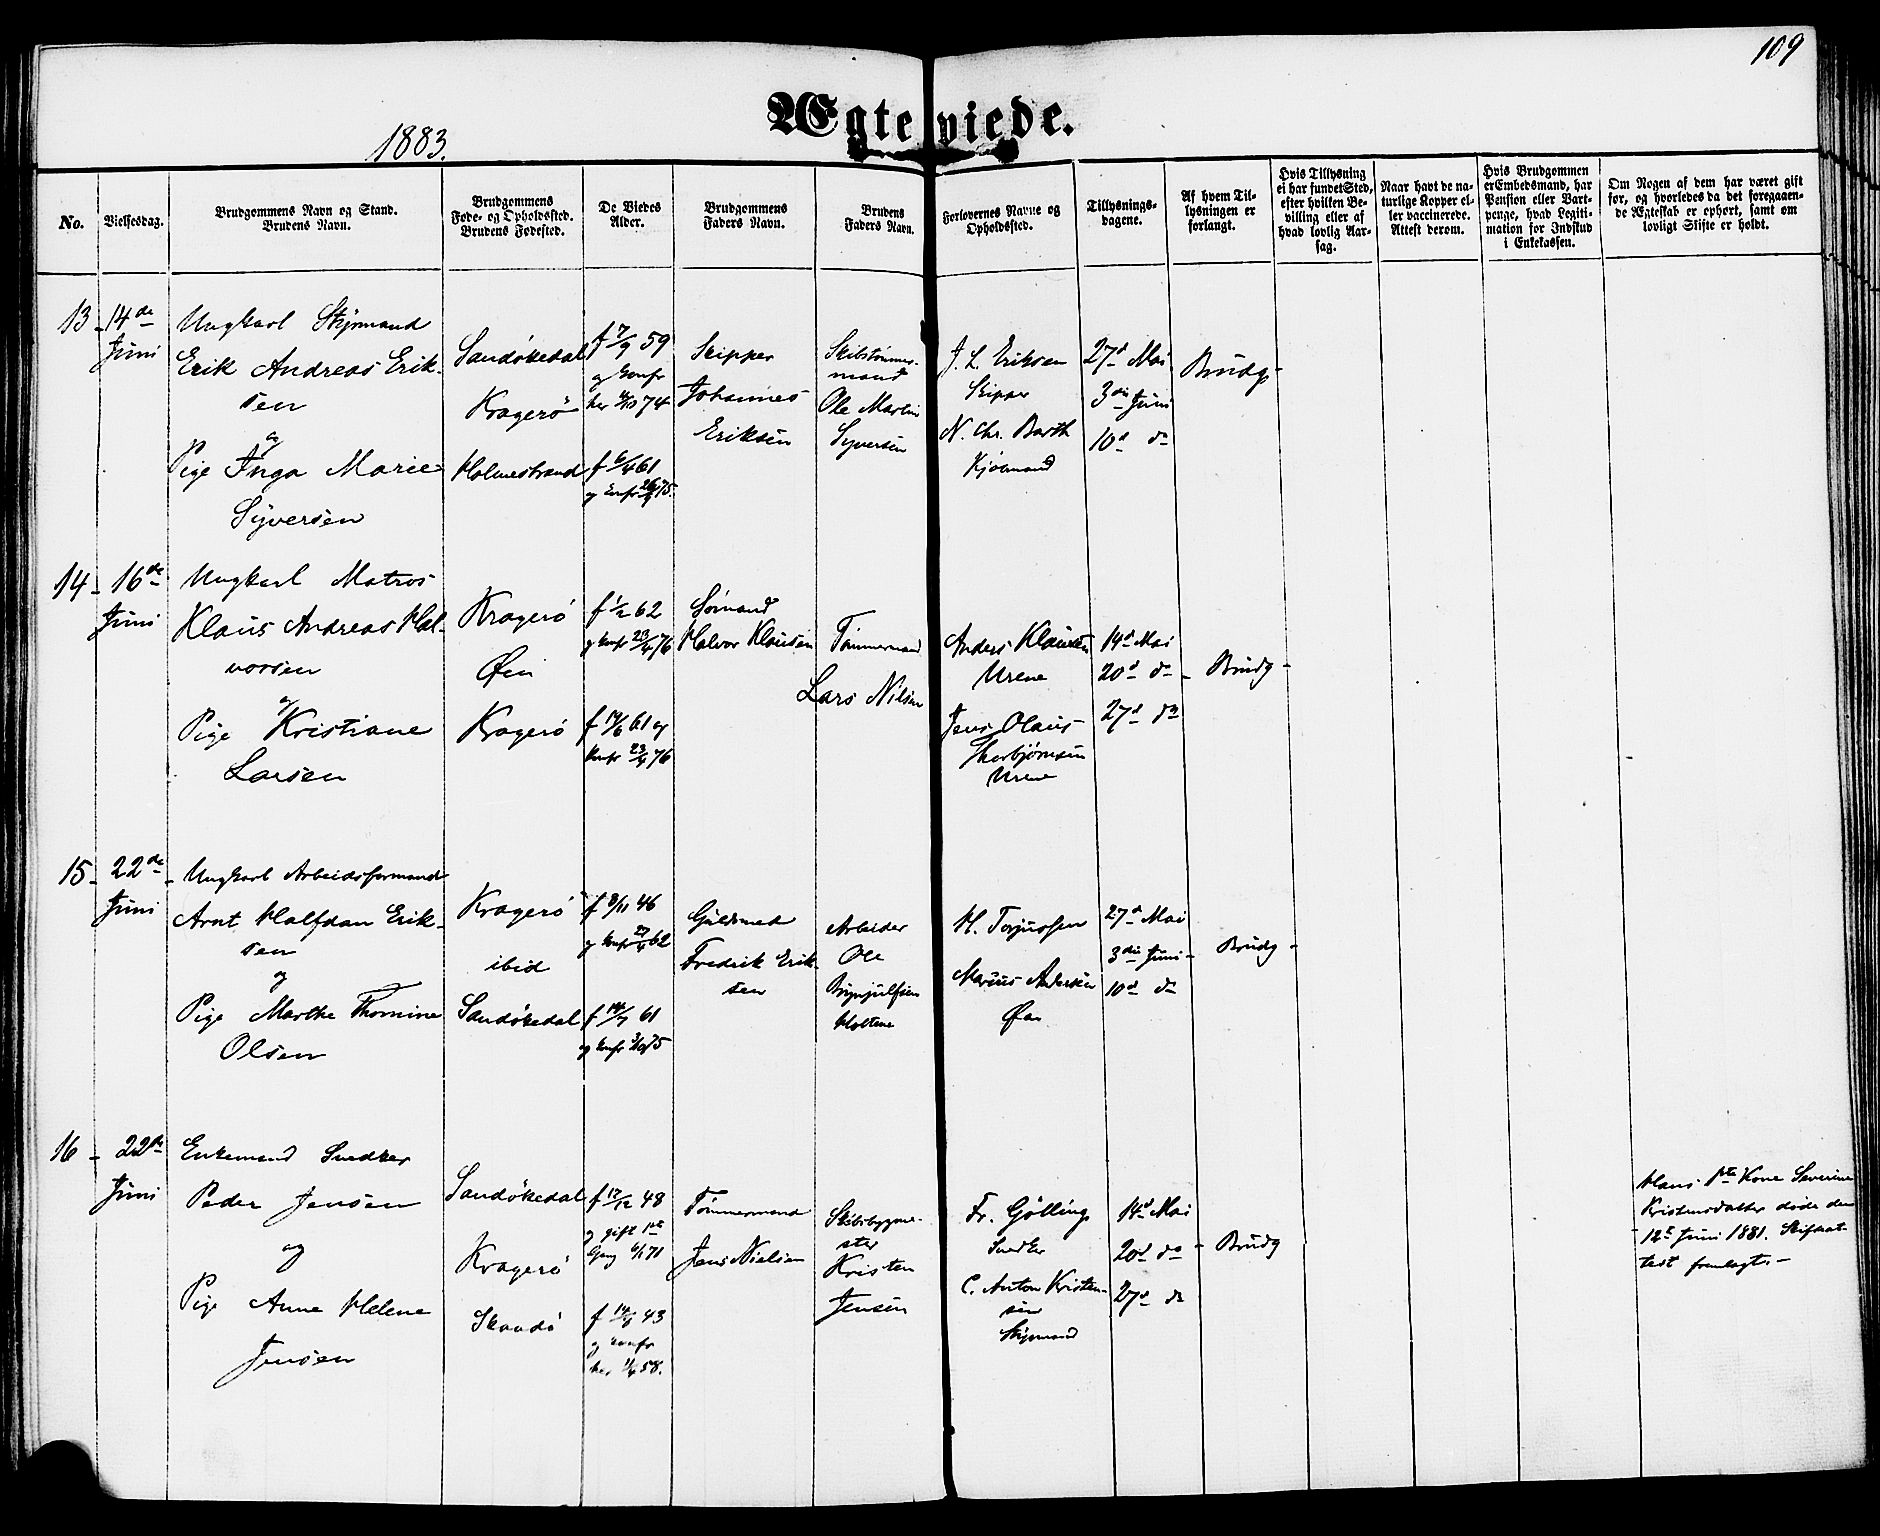 109
Ægteviede.
1883.
No.
Vielsesdag.
Brudgommens Navn og Stand.
Brudens Navn.
Brudgommens
Føde- og Opholdssted.
Brudens Fødested.
De Viedes
Alder.
Brudgommens
Faders Navn.
Brudens
Faders Navn.
Forlovernes Navne og
Opholdssted.
Tillysnings-
dagene.
Af hvem Til-
lysningen er
forlangt.
Hvis Tillysning
ei har fundet Sted,
efter hvilken Be-
villing eller af
hvad lovlig Aar-
sag.
Naar havt de na-
turlige Kopper el-
ler vaccinerede.
Attest derom.
Hvis Brudgommen
er Embedsmand, har
Pension eller Vart-
penge, hvad Legiti-
mation for Indskud
i Enkekassen.
Om Nogen af dem har været gift
før, og hvorledes da det foregaaen-
de Ægteskab er ophørt, samt om
lovligt Skifte er holdt.
13 -
14de
Juni
Ungkarl Styrmand
Erik Andreas Erik-
sen
og
Pige Inga Marie
Syversen
Sandøkedal
Kragerø
Holmestrand
f 7/9 59
og konfr
her 74
f 6/4 61
og konfr 75.
Skipper
Johannes
Eriksen
Skibstømmer-
mand
Ole Martin
Syversen
J. L. Eriksen
Skipper
N. Chr. Barth
Kjøbmand
27d Mai
3die Juni
10d do
Brudg-
14 -
16de
Juni
Ungkarl Matros
Klaus Andreas Hal-
vorsen
og
Pige Kristiane
Larsen
Kragerø
Øen
Kragerø
f 1/2 62
og konfr 23/4 76
f 61 og
konfr 23/4 76
Sømand
Halvor Klausen
Tømmermand
Lars Nilsen
Anders Klausen
Urene
Jens Olaus
Thorbjørnsen
Urene
14d Mai
20d do -
27d do
Brudg -
15 -
22de
Juni
Ungkarl Arbeidsformand
Arnt Halfdan Erik-
sen
og
Pige Marthe Thomine
Olsen
Kragerø
ibid
Sandøkedal
f 8/11 46
og konfr 27/4 62
f 14/7 61
og konfr 3/10 75
Guldsmed
Fredrik Erik-
sen
Arbeider
Ole
Brynjulfsen
Holtene
H. Torjussen
Marius Andersen
Øen
27d Mai
3die Juni -
10d do
Brudg -
16 -
22de
Juni
Enkemand Snedker
Peder Jensen
og
Pige Anne Helene
Jensen
Sandøkedal
Kragerø
Skaadø
f 17/12 48
og gift 1ste
Gang 71
f 43
og konfr
her 58.
Tømmermand
Jens Nielsen
Skibsbygme-
ster
Kristen
Jensen
Fr. Gölling
Snedker
C. Anton Kristen-
sen
Styrmand
14d Mai
20d do -
27d do
Brudg
Hans 1ste Kone Severine
Kristensdatter døde den
12te Juni 1881. Skifteat-
test fremlagt. -